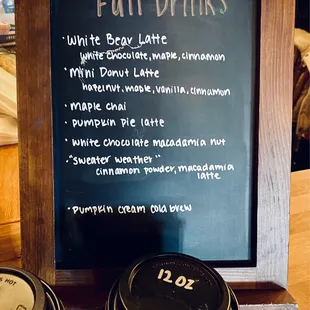 Fall Drinks
• White Bear Latte
white chocolate, maple, cinnamon
• Mini Donut Latte
hazelnut, maple, vanilla, cinnamon
• maple chai
• pumpkin pie latte
• white chocolate macadamia nut
• "sweater weather"
cinnamon powder, macadamia
latte
• pumpkin cream cold brew
12oz
HOT